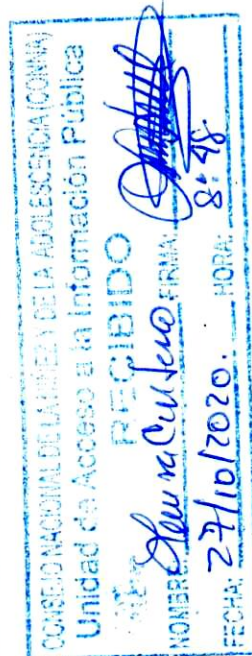 CONSEJO NACIONAL DE LA NIÑEZ Y DE LA ADOLESCENCIA (CONNA)
Unidad de Acceso a la Información Pública
RECIBIDO
NOMBRE: FIRMA:
FECHA: 27/10/2020. HORA: 8:48.